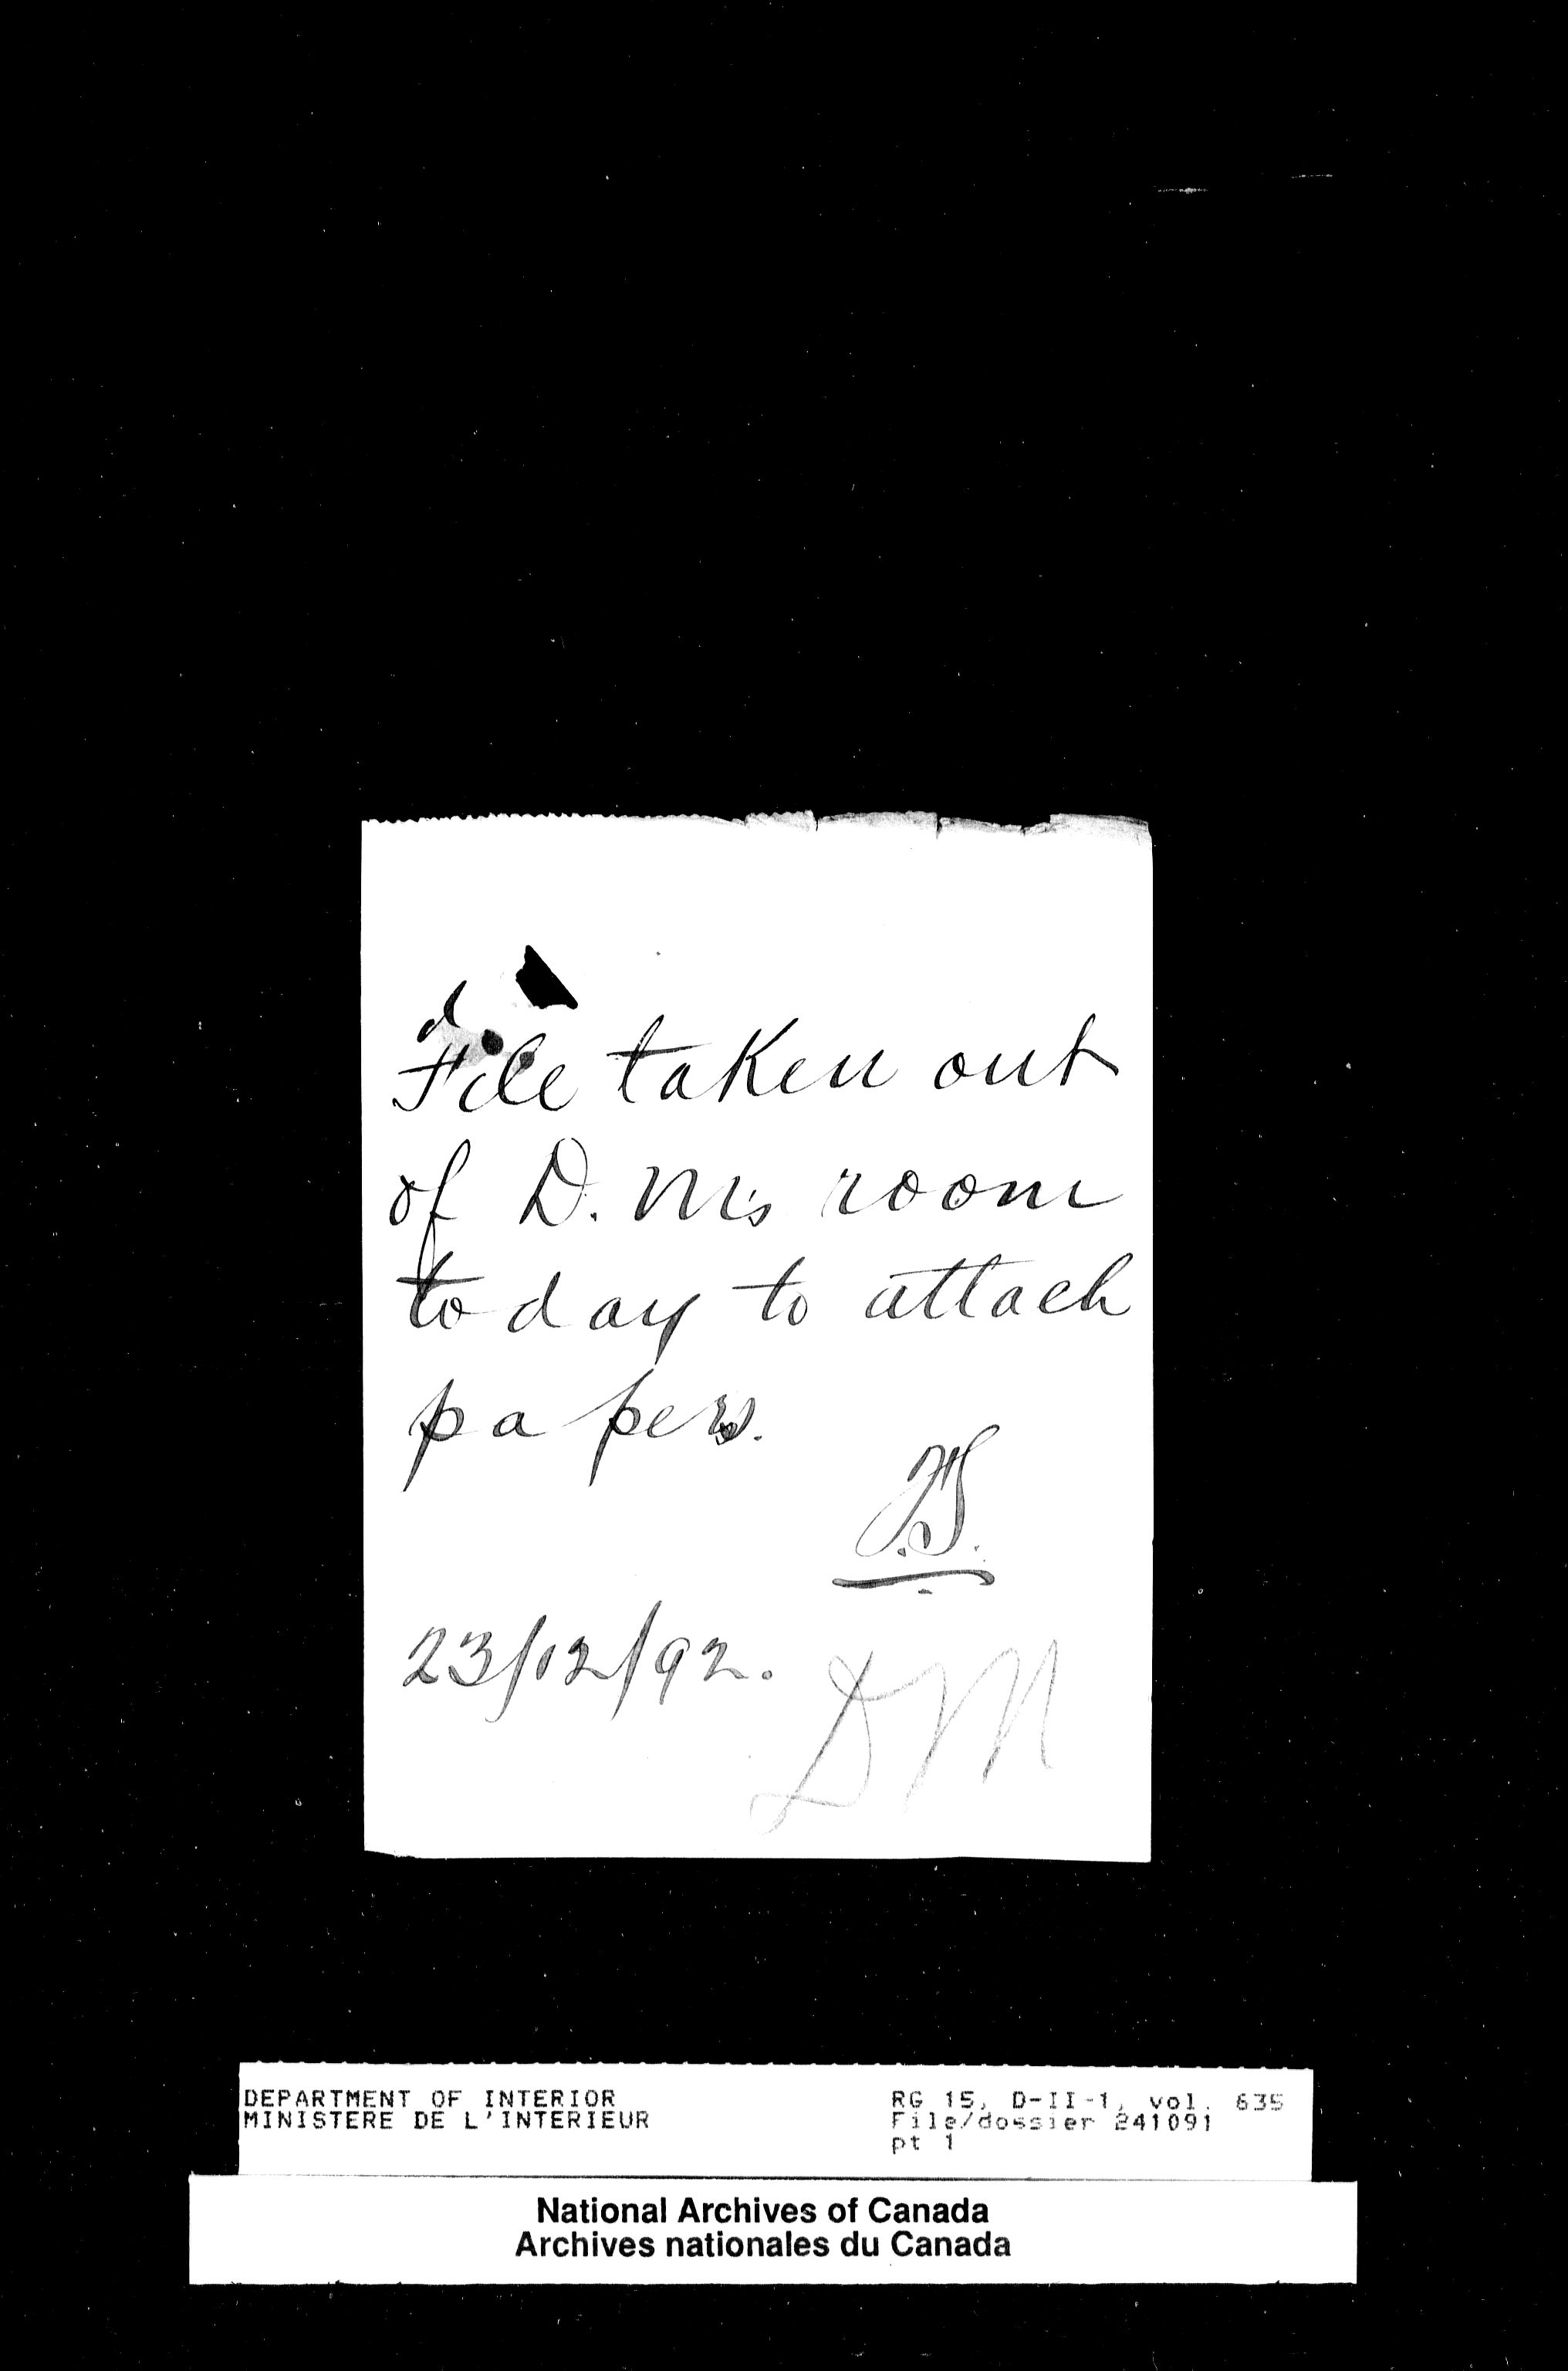 File taken out
of D. M's room
to day to attach
papers.
23/12/92.
DM
DEPARTMENT OF INTERIOR
MINISTERE DE L'INTERIEUR
RG 15, D-II-1, vol. 635
File/dossier 241091
pt 1
National Archives of Canada
Archives nationales du Canada